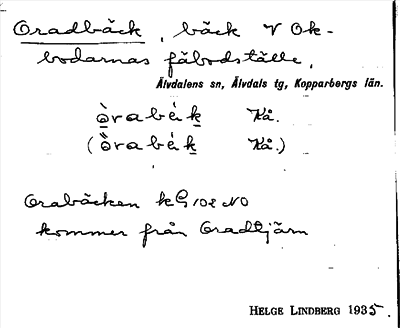 Oradbäck, bäck V Ok-
bodarnas fäbodställe,
Älvdalens sn, Älvdals tg, Kopparbergs län.
òrabèk Kå.
(òrabèk Kå.)
Orabäcken kG 102 NO
kommer från Oradtjärn
HELGE LINDBERG 1935.